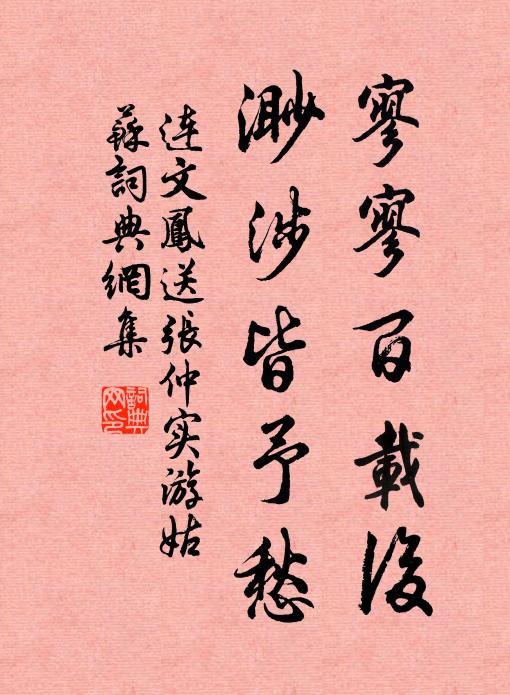 寥寥百載後
渺涉皆予愁
連文鳳送張仲实游姑
蘇詞典網集
詞典
网印